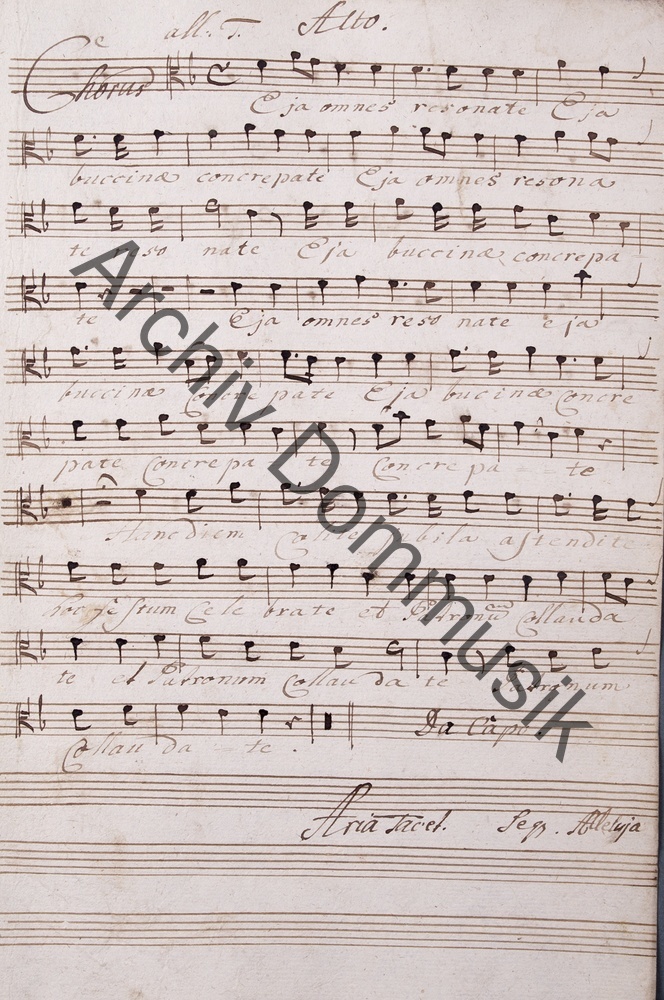 all: T. Alto.
Chorus
Eja omnes resonate Eja
buccinæ concrepate Eja omnes resona
te reso nate Eja buccinæ concrepa
te Eja omnes reso nate eja
buccinæ Concre pate Eja bucinæ Concre
pate Concrepa te Concre pa te
Hanc diem Colite jubila astendite
hoc festum Cele brate et Patronum Collauda
te et Patronum Collau da te Patronum
Collau da te.
Da Capo.
Aria tacet. Seqr. Alleluja
Archiv Dommusik